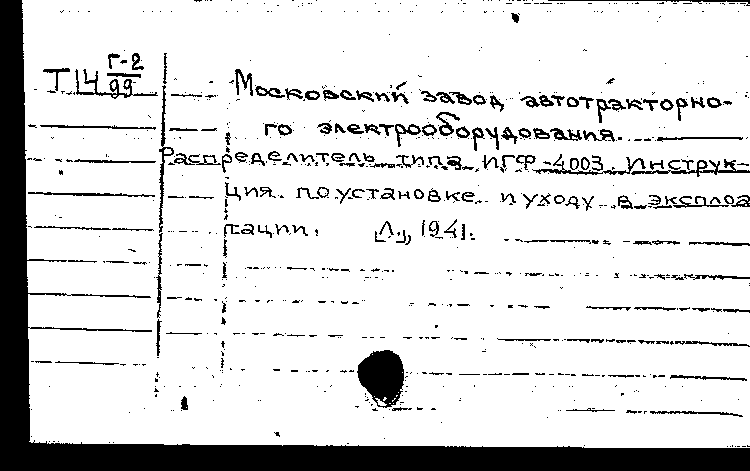 Г-2
Т14 99
Московский завод автотракторно-
го электрооборудования.
Распределитель типа ИГФ-4003. Инструк-
ция по установке и уходу в эксплоа
тации. Л., 1941.